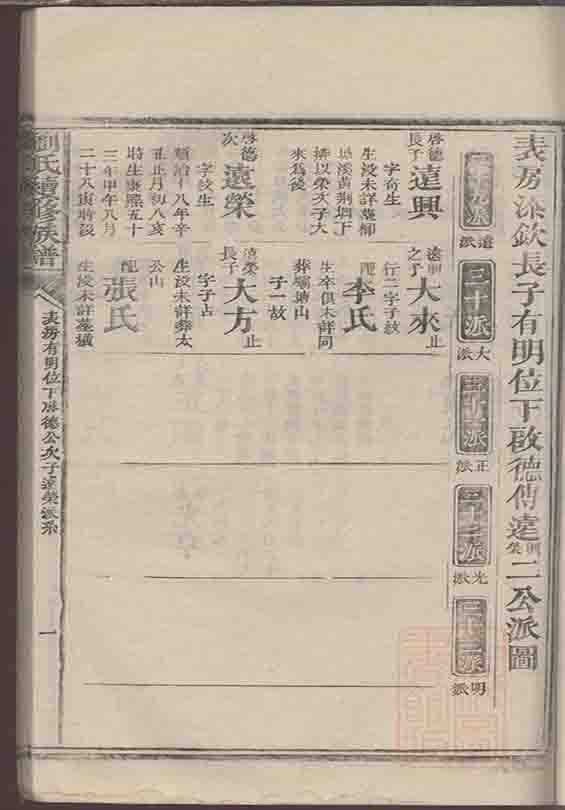 表房添欽長子有明位下啟德傳遠興榮二公派圖
二十九派
遠派
三十派
大派
三十一派
正派
三十二派
光派
三十三派
明派
啓德
長子
遠興
字奇生
生沒未詳葬柳
塘溪黃荊坳丁
排以榮次子大
來為後
啓德
次
遠榮
字紋生
順治十八年辛
丑正月初八亥
時生康熙五十
三年甲午八月
二十八寅時沒
遠興
之子
大來
止
行二字子紋
配
李氏
生卒俱未詳同
葬塘山
子一故
遠榮
長子
大方
止
字子占
生沒未詳葬太
公山
配
張氏
生沒未詳墓橫
劉氏續修族譜
表房有明位下啟德公次子遠榮派系
一